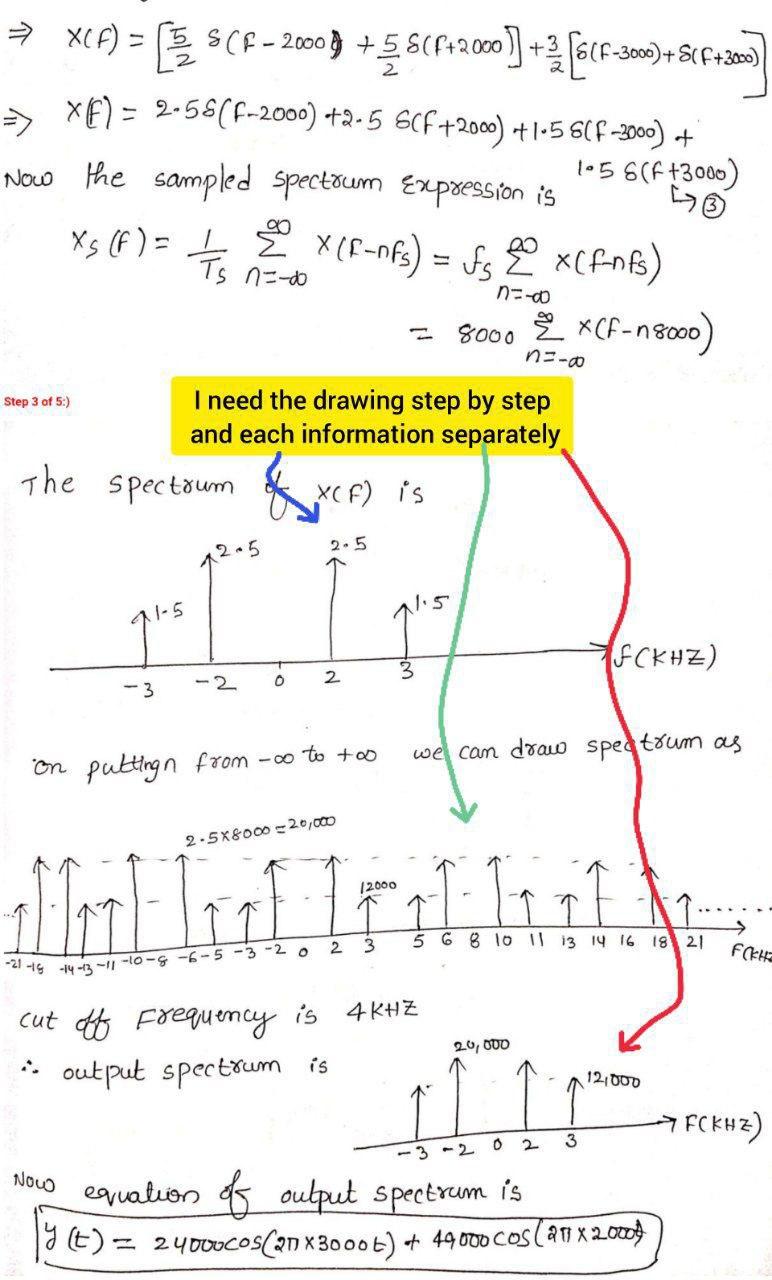 ⇒ X(f) = [5/2 δ(f-2000) + 5/2 δ(f+2000)] + 3/2 [δ(f-3000) + δ(f+3000)]
⇒ X(f) = 2.5δ(f-2000) + 2.5 δ(f+2000) + 1.5 δ(f-3000) +
1.5 δ(f+3000)
↳ ③
Now the sampled spectrum Expression is
Xs(f) = 1/Ts ∑ n=-∞ ∞ X(f-nfs) = fs ∑ n=-∞ ∞ X(f-nfs)
= 8000 ∑ n=-∞ ∞ X(f-n8000)
Step 3 of 5:)
I need the drawing step by step
and each information separately
The spectrum of X(F) is
2.5 2.5
1.5 1.5
-3 -2 0 2 3 f(KHZ)
on puttingn from -∞ to +∞ we can draw spectrum as
2.5×8000=20,000
12000
-21 -18 -14 -13 -11 -10 -8 -6 -5 -3 -2 0 2 3 5 6 8 10 11 13 14 16 18 21 F(KHZ
cut off Frequency is 4KHZ
20,000
∴ output spectrum is
12,000
-3 -2 0 2 3 F(KHZ)
Now equation of output spectrum is
y(t) = 24000cos(2π×3000t) + 44000cos(2π×2000t)